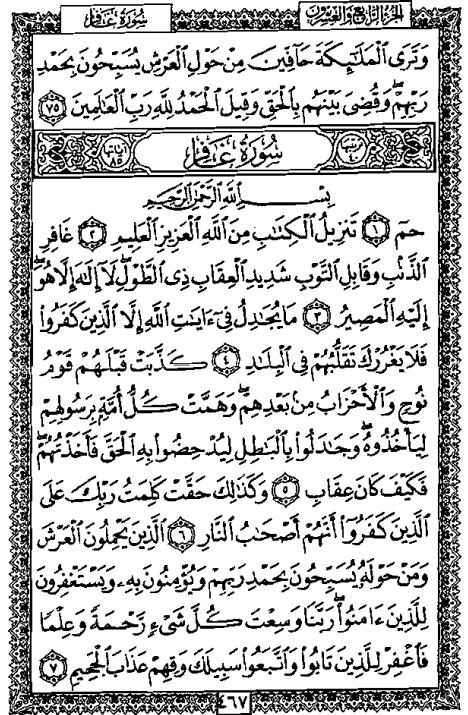 سُورَةُ غَافِرٍ الجُزءُ الرَّابِعُ وَالعِشْرُونَ
وَتَرَى ٱلْمَلَٰٓئِكَةَ حَآفِّينَ مِنْ حَوْلِ ٱلْعَرْشِ يُسَبِّحُونَ بِحَمْدِ
رَبِّهِمْ ۖ وَقُضِىَ بَيْنَهُم بِٱلْحَقِّ وَقِيلَ ٱلْحَمْدُ لِلَّهِ رَبِّ ٱلْعَٰلَمِينَ ٧٥
ترتيبها ٤٠ سُورَةُ غَافِرٍ آياتها ٨٥
بِسْمِ ٱللَّهِ ٱلرَّحْمَٰنِ ٱلرَّحِيمِ
حمٓ ١ تَنزِيلُ ٱلْكِتَٰبِ مِنَ ٱللَّهِ ٱلْعَزِيزِ ٱلْعَلِيمِ ٢ غَافِرِ
ٱلذَّنۢبِ وَقَابِلِ ٱلتَّوْبِ شَدِيدِ ٱلْعِقَابِ ذِى ٱلطَّوْلِ ۖ لَآ إِلَٰهَ إِلَّا هُوَ ۖ
إِلَيْهِ ٱلْمَصِيرُ ٣ مَا يُجَٰدِلُ فِىٓ ءَايَٰتِ ٱللَّهِ إِلَّا ٱلَّذِينَ كَفَرُوا۟
فَلَا يَغْرُرْكَ تَقَلُّبُهُمْ فِى ٱلْبِلَٰدِ ٤ كَذَّبَتْ قَبْلَهُمْ قَوْمُ
نُوحٍ وَٱلْأَحْزَابُ مِنۢ بَعْدِهِمْ ۖ وَهَمَّتْ كُلُّ أُمَّةٍۭ بِرَسُولِهِمْ
لِيَأْخُذُوهُ ۖ وَجَٰدَلُوا۟ بِٱلْبَٰطِلِ لِيُدْحِضُوا۟ بِهِ ٱلْحَقَّ فَأَخَذْتُهُمْ ۖ
فَكَيْفَ كَانَ عِقَابِ ٥ وَكَذَٰلِكَ حَقَّتْ كَلِمَتُ رَبِّكَ عَلَى
ٱلَّذِينَ كَفَرُوٓا۟ أَنَّهُمْ أَصْحَٰبُ ٱلنَّارِ ٦ ٱلَّذِينَ يَحْمِلُونَ ٱلْعَرْشَ
وَمَنْ حَوْلَهُۥ يُسَبِّحُونَ بِحَمْدِ رَبِّهِمْ وَيُؤْمِنُونَ بِهِۦ وَيَسْتَغْفِرُونَ
لِلَّذِينَ ءَامَنُوا۟ رَبَّنَا وَسِعْتَ كُلَّ شَىْءٍ رَّحْمَةً وَعِلْمًا
فَٱغْفِرْ لِلَّذِينَ تَابُوا۟ وَٱتَّبَعُوا۟ سَبِيلَكَ وَقِهِمْ عَذَابَ ٱلْجَحِيمِ ٧
٤٦٧